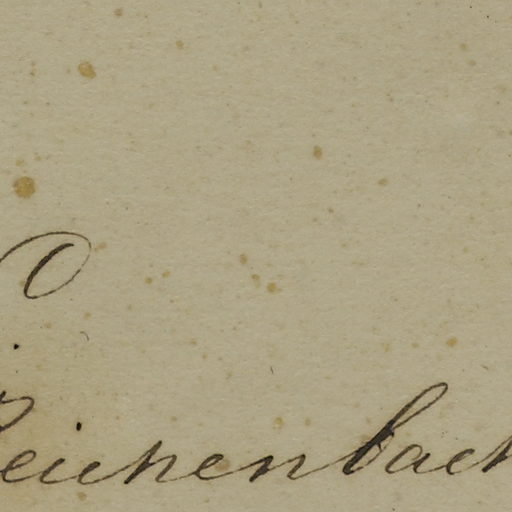 O
Reichenbach